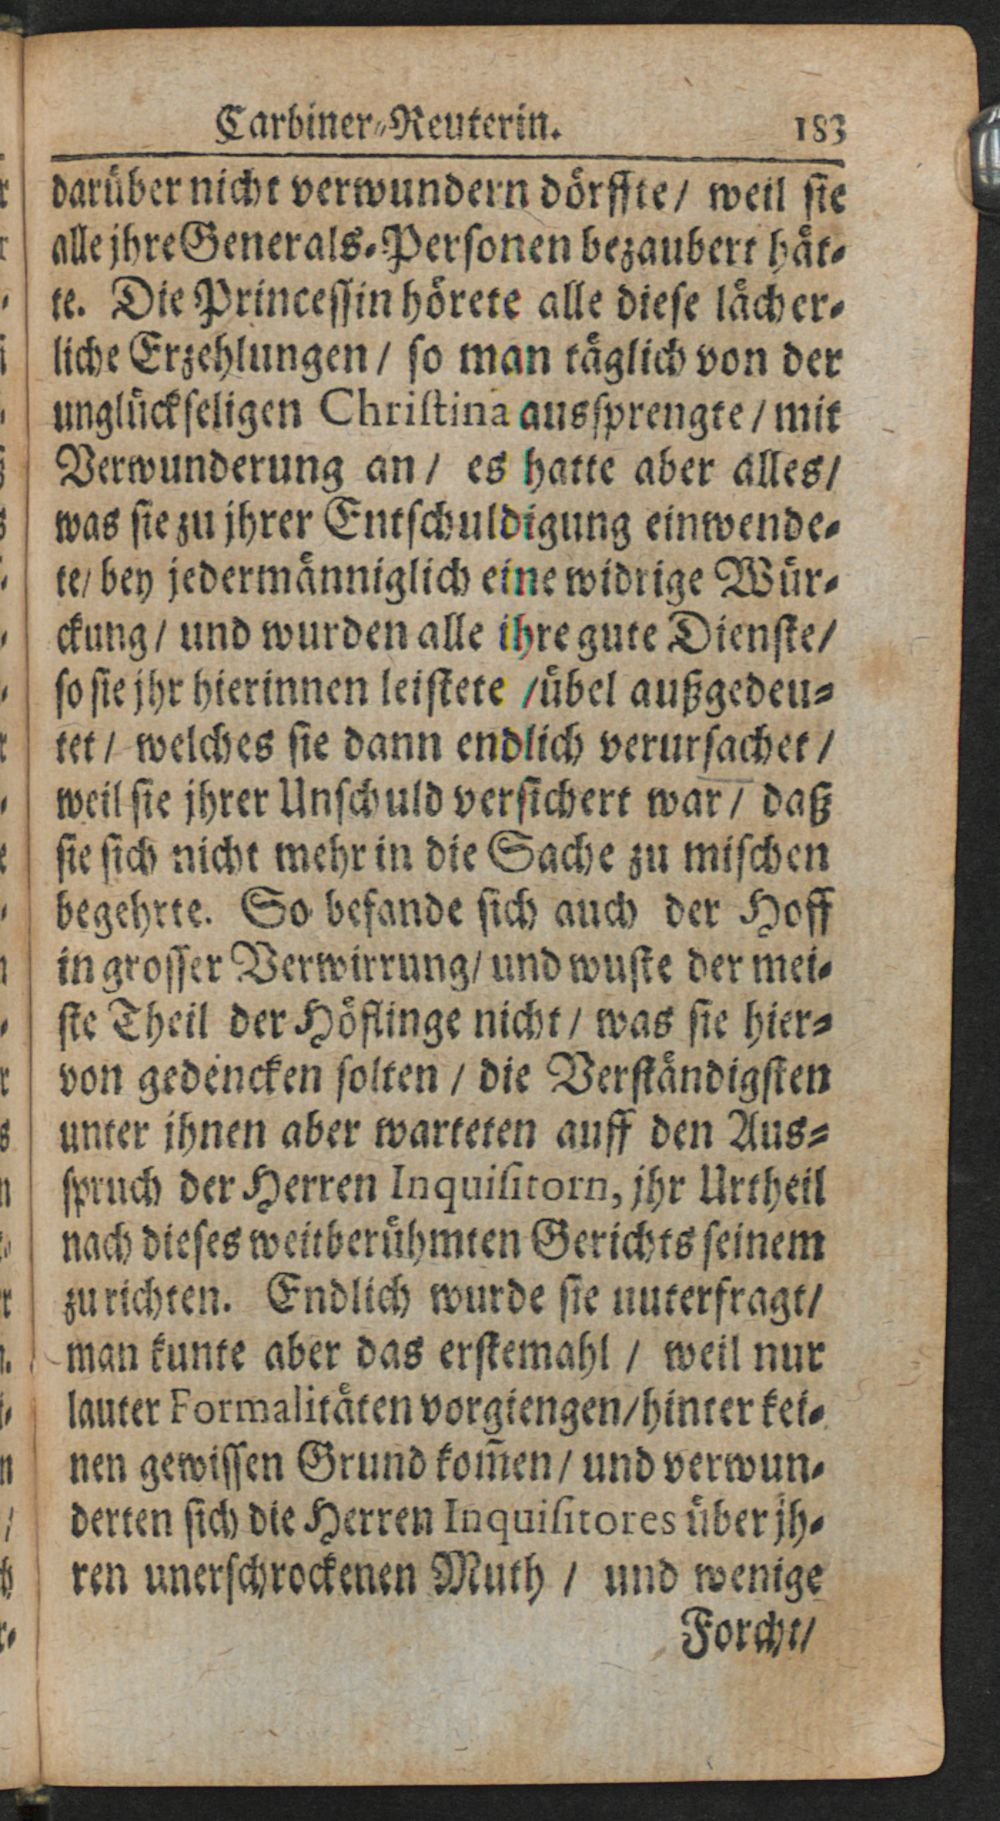 Carbiner-Reuterin. 183
darüber nicht verwundern dörffte / weil sie
alle jhre Generals-Personen bezaubert hät-
te. Die Princessin hörete alle diese lächer-
liche Erzehlungen / so man täglich von der
unglückseligen Christina aussprengte / mit
Verwunderung an / es hatte aber alles /
was sie zu jhrer Entschuldigung einwende-
te / bey jedermänniglich eine widrige Wür-
ckung / und wurden alle ihre gute Dienste /
so sie jhr hierinnen leistete / übel außgedeu-
tet / welches sie dann endlich verursachet /
weil sie jhrer Unschuld versichert war / daß
sie sich nicht mehr in die Sache zu mischen
begehrte. So befande sich auch der Hoff
in grosser Verwirrung / und wuste der mei-
ste Theil der Höflinge nicht / was sie hier-
von gedencken solten / die Verständigsten
unter ihnen aber warteten auff den Aus-
spruch der Herren Inquisitorn, jhr Urtheil
nach dieses weitberühmten Gerichts seinem
zu richten. Endlich wurde sie uuterfragt /
man kunte aber das erstemahl / weil nur
lauter Formalitäten vorgiengen / hinter kei-
nen gewissen Grund kom̃en / und verwun-
derten sich die Herren Inquisitores über jh-
ren unerschrockenen Muth / und wenige
Forcht /